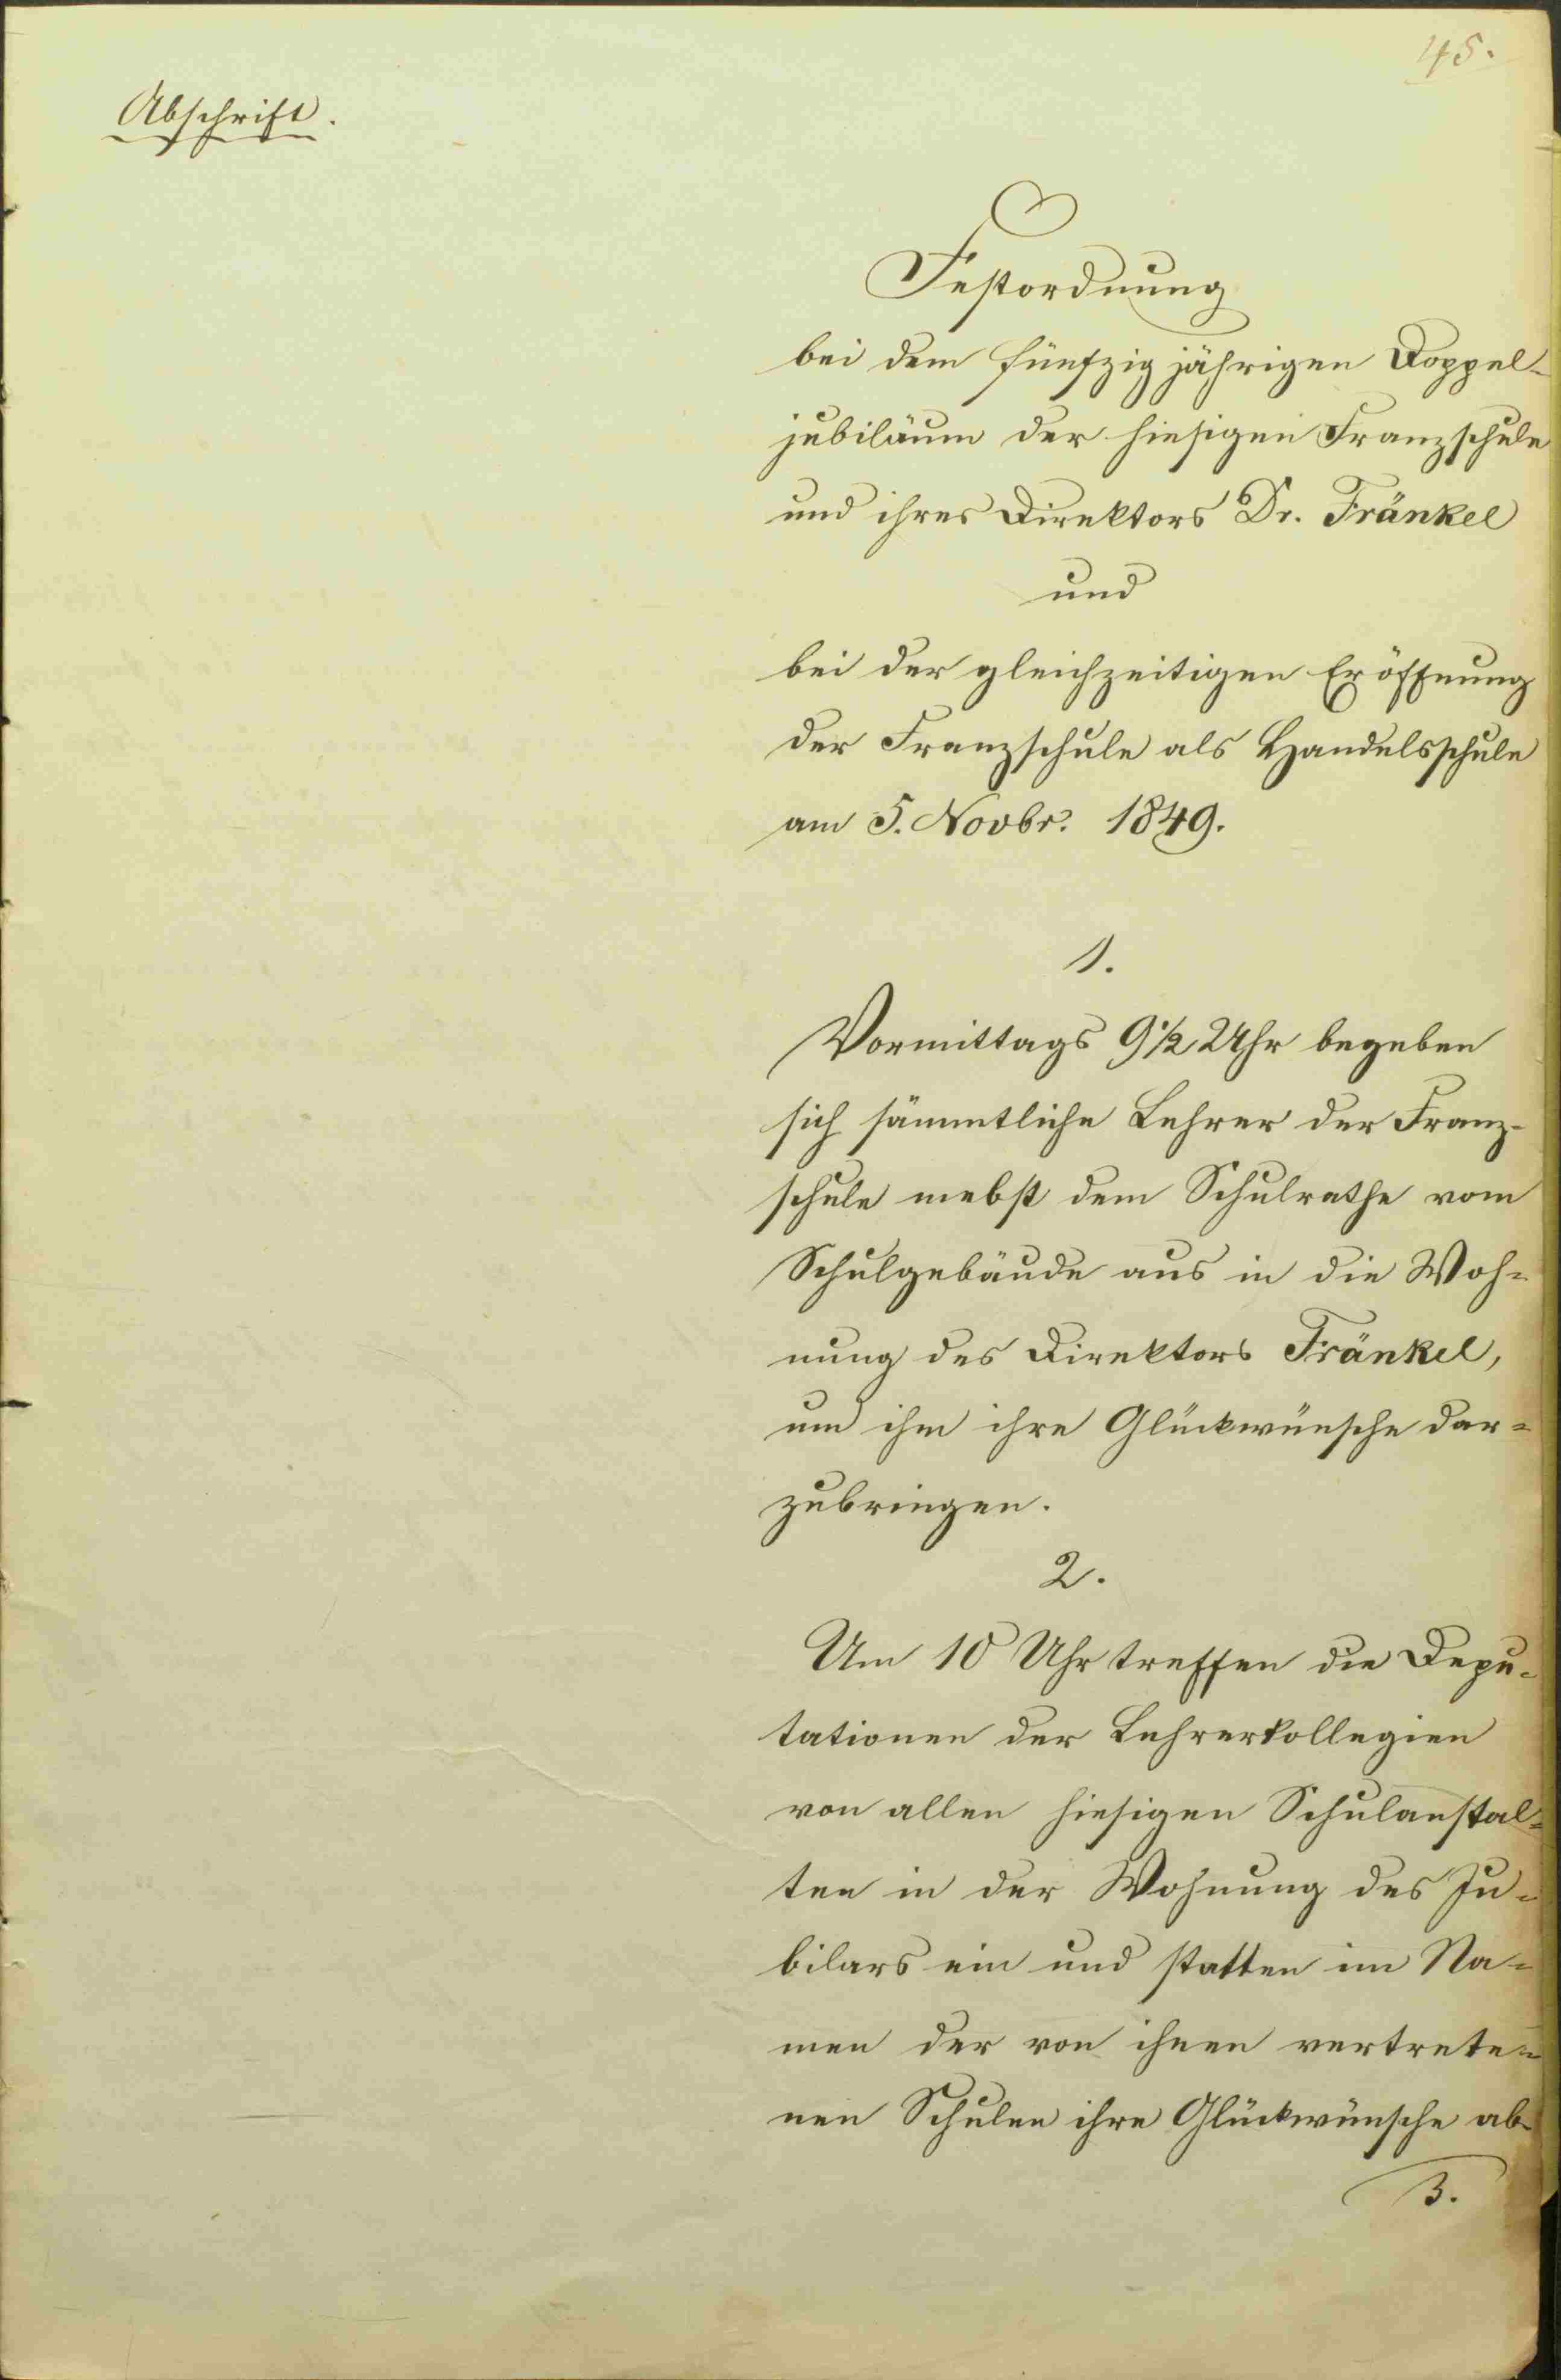 45.
Abschrift.
Festordnung
bei dem fünfzig jährigen Doppel-
jubiläum der hiesigen Franzschule
und ihres Direktors Dr. Fränkel
und
bei der gleichzeitigen Eröffnung
der Franzschule als Handelsschule
am 5. Novbr. 1849.
1.
Vormittags 9 1/2 Uhr begeben
sich sämmtliche Lehrer der Franz-
schule nebst dem Schulrathe vom
Schulgebäude aus in die Woh-
nung des Direktors Fränkel,
um ihm ihre Glückwünsche dar-
zubringen.
2.
Um 10 Uhr treffen die Depu-
tationen der Lehrerkollegien
von allen hiesigen Schulanstal-
ten in der Wohnung des Ju-
bilars ein und statten im Na-
men der von ihnen vertrete-
nen Schulen ihre Glückwünsche ab.
3.